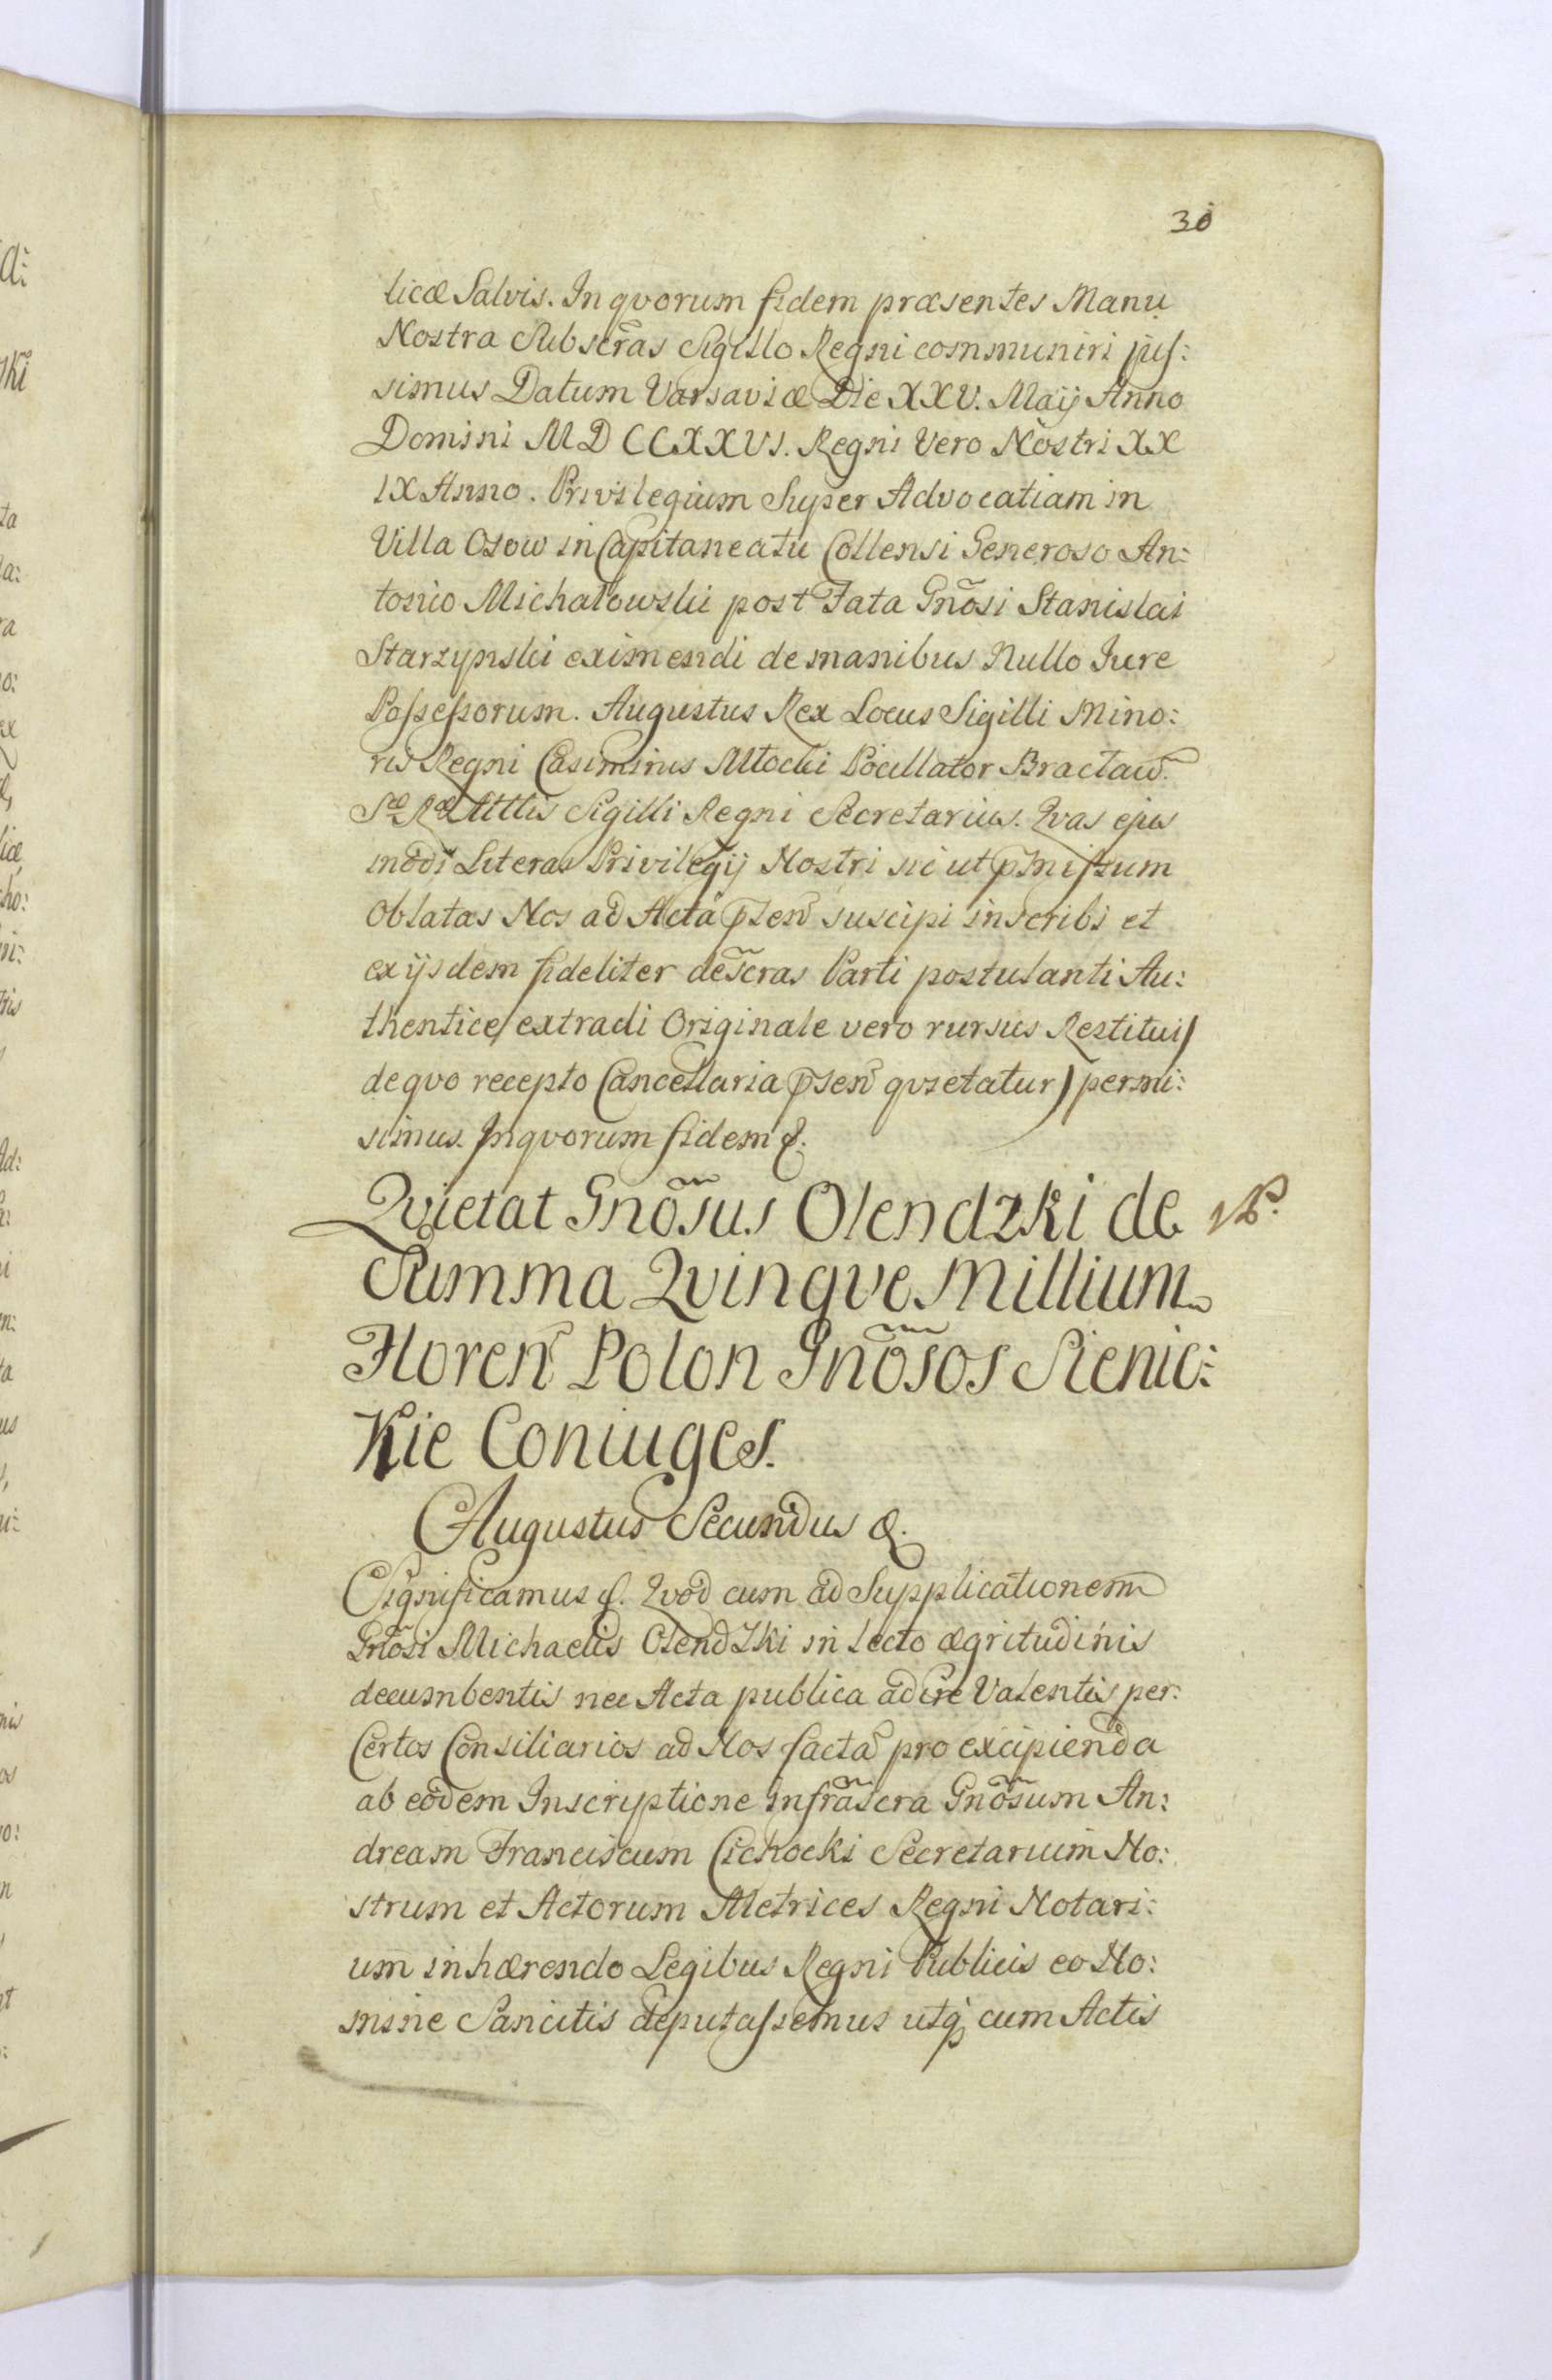 30
licæ Salvis. In qvorum fidem præsentes Manu
Nostra Subscr̃as Sigillo Regni communiri jus:
simus Datum Varsaviæ Die XXV. Maij Anno
Domini MDCCXXVI. Regni Vero Nostri XX
IX Anno. Privilegium Super Advocatiam in
Villa Osow in Capitaneatu Collensi Generoso An:
tonio Michałowski post Fata Gnõsi Stanislai
Starzynski eximendi de manibus Nullo Jure
Possessorum. Augustus Rex Locus Sigilli Mino:
ris Regni Casimirus Młocki Pocillator Bracław.
Sæ Ræ Mttis Sigilli Regni Secretarius. Qvas ejus
modi Literas Privilegij Nostri sic ut p̃missum
Oblatas Nos ad Acta p̃sen suscipi inscribi et
ex ijsdem fideliter descr̃as Parti postulanti Au:
thentice extradi Originale vero rursus Restitui/
de qvo recepto Cancellaria p̃sen qvietatur) permi:
simus. In qvorum fidem &.
Qvietat Gnõsus Olendzki de
Summa Qvinqve Millium
Floren Polon Gnõsos Sienic:
kie Coniuges.
Augustus Secundus &.
Significamus &. Qvod cum ad Supplicationem
Gnõsi Michaelis Olendzki in lecto ægritudinis
decumbentis nec Acta publica adire Valentis per
Certos Consiliarios ad Nos facta pro excipienda
ab eodem Inscriptione infrascr̃a Gnõsum An:
dream Franciscum Cichocki Secretarium No:
strum et Actorum Metrices Regni Notari:
um inhærendo Legibus Regni Publicis eo No:
mine Sancitis deputassemus utq; cum Actis